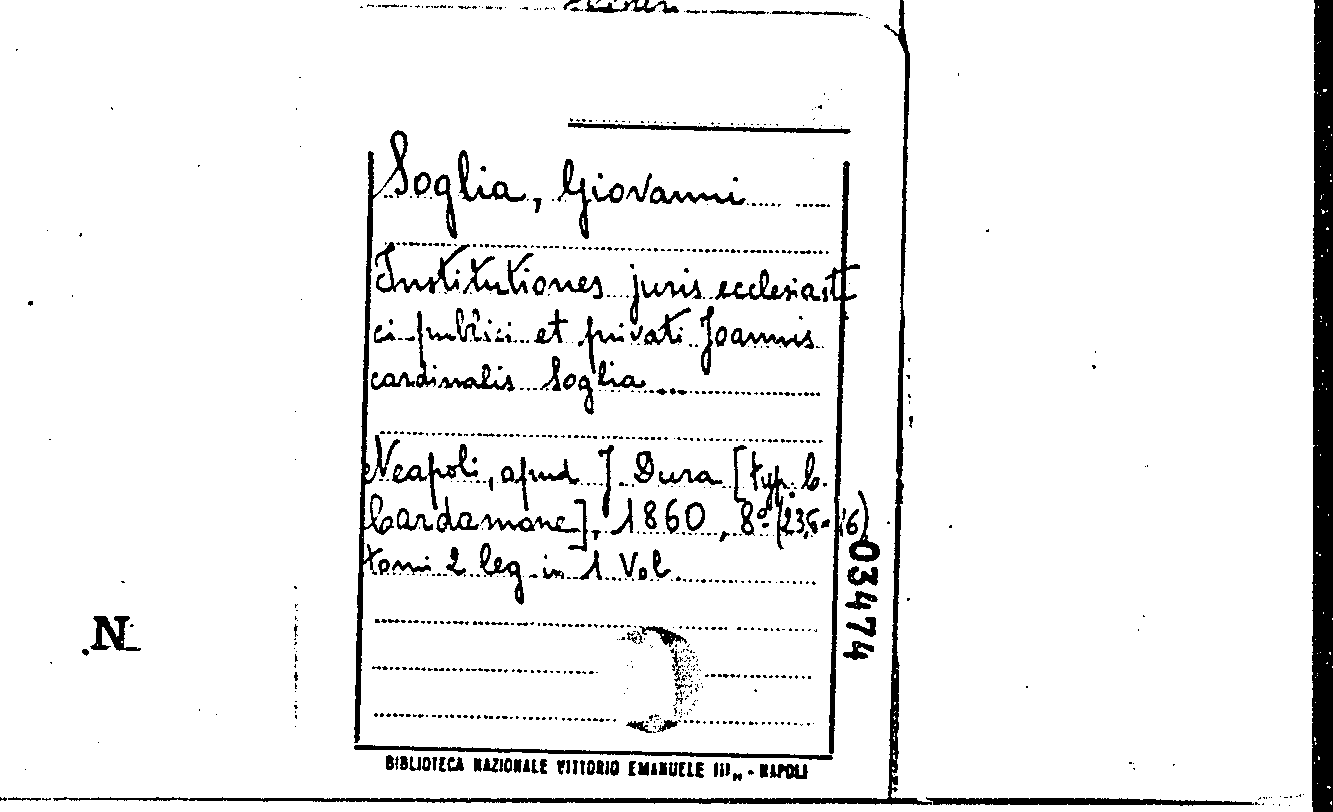 Soglia, Giovanni
Institutiones juris ecclesiasti
ci publici et privati Joannis
cardinalis Soglia...
Neapoli, apud J. Dura [typ. C.
Cardamone], 1860, 8º (23,5-16)
tomi 2 leg. in 1 Vol.
03474
N
BIBLIOTECA NAZIONALE VITTORIO EMANUELE III,, - NAPOLI